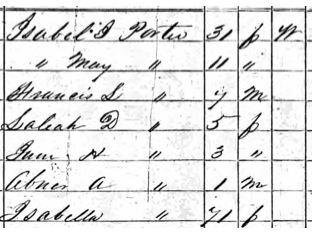 Isabel J Porter 31 f W
" May " 11 "
Francis L " 7 m
Saleah D " 5 f
June H " 3 "
Abner A " 1 m
Isabella " 71 f